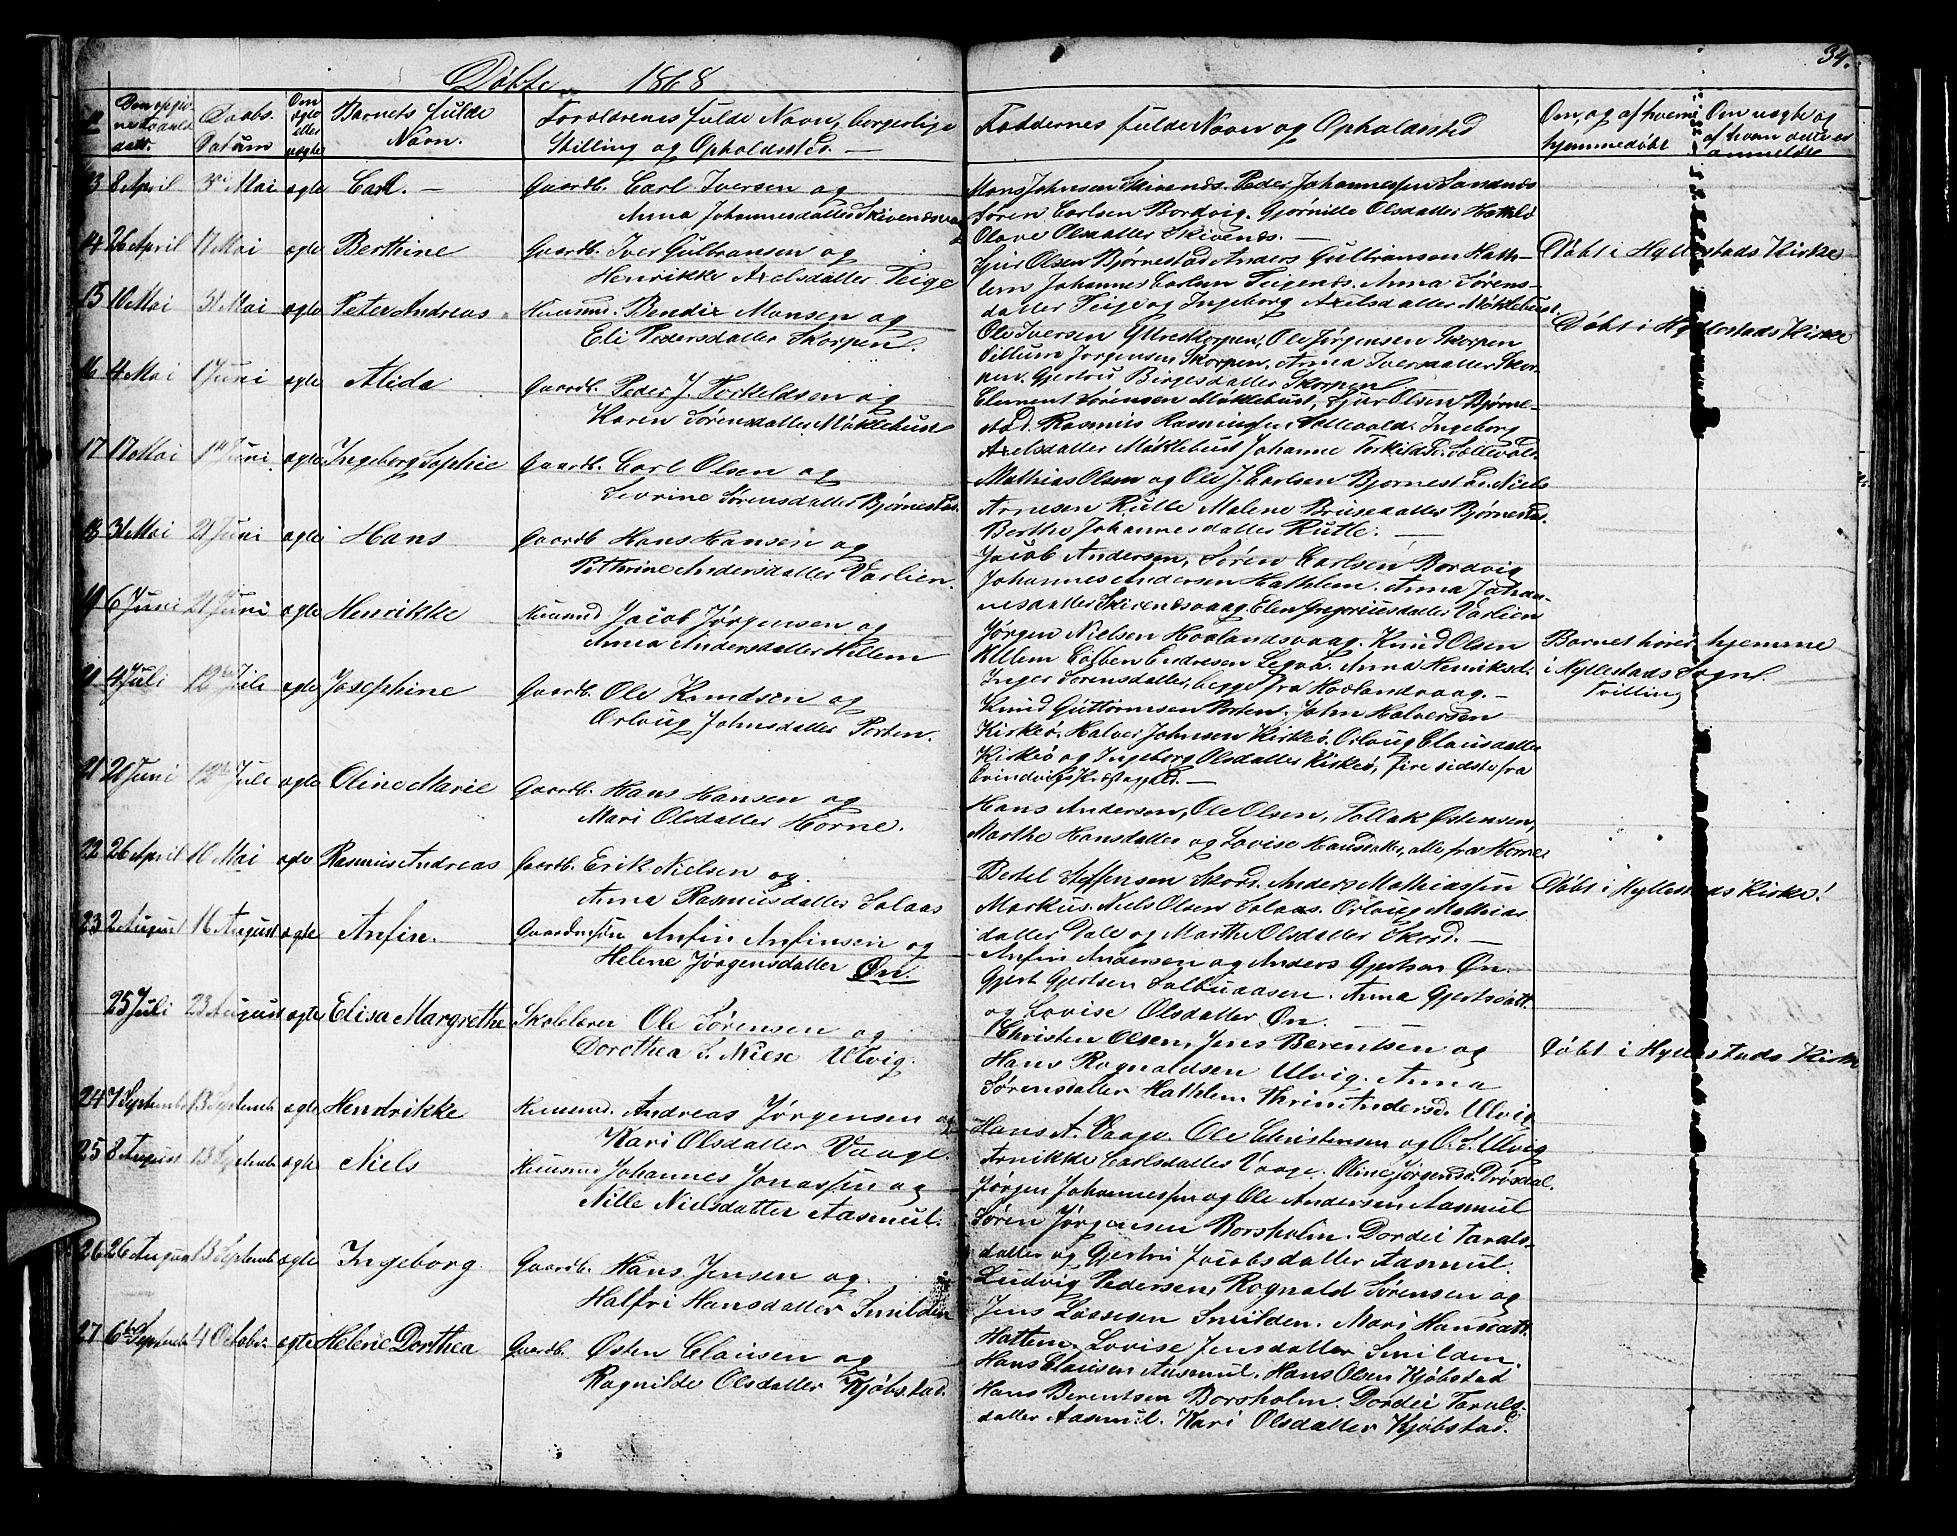 34.
Døbte 1868
№ Den opgivne Fødselsdatum. Daabs Datum Om ægte eller uægte Barnets fulde Navn. Forældrenes fulde Navn, borgerlige Stilling og Opholdssted. — Faddernes fulde Navn og Opholdssted Om, og af hvem hjemmedøbt Om uægte og af hvem dette er anmeldte
13 8 April 3die Mai ægte Carl. — Gaardb. Carl Iversen og
Anna Johannesdatter Skivenesvaag
Mons Johnsen Skivenes. Peder Johannessen Sandnes
Søren Carlsen Bordvig. Gjørnille Olsdatter Hathle
Olave Olsdatter Skivenes. —
14 26 April 17 Mai ægte Berthine Gaardb. Iver Gulbransen og
Henrikke Axelsdatter Teige
Sjur Olsen Bjørnestad Anders Gulbransen Hath-
lem Johannes Carlsen Teigenes. Anna Sørens-
datter Teige og Ingeborg Axelsdatter Møklebust.
Døbt i Hyllestads Kirke
15 10 Mai 31 Mai ægte Peter Andreas Huusmd. Bendix Monsen og
Eli Pedersdatter Skorpen.
Ole Iversen Yttreskorpen, Ole Jørgensen Skorpen
Villum Jørgensen Skorpen, Anna Iversdatter Skor-
pen. Gjertru Birgesdatter Skorpen
Døbt i Hyllestads Kirke
16 4 Mai 1 Juni ægte Alida Gaardb. Peder J. Torkeldsen og
Karen Sørensdatter Møklebust
Clement Sørensen Møklebust, Sjur Olsen Bjørne-
stad. Rasmus Rasmussen Sollevold. Ingeborg
Axelsdatter Møklebust Johanne Torkilsd. Sollevold.
17 17 Mai 1ste Juni. ægte Ingeborg Sophie Gaardb. Carl Olsen og
Sevrine Sørensdatter Bjørnestad.
Mathias Olsen og Ole J. Carlsen Bjørnestad. Niels
Arnesen Rutle Malene Brusedatter Bjørnestd.
Berthe Johannesdatter Rutle. —
18 31 Mai 21 Juni ægte Hans Gaardb. Hans Hansen og
Pethrine Andersdatter Varlien.
Jacob Andersen, Søren Carlsen Bordvig
Johannes Andersen Hathlem. Anna Johan-
nesdatter Skivenesvaag Elen Gregoriusdatter Varlien
19 6 Juni 21 Juni ægte Henrikke Huusmd Jacob Jørgensen og
Anna Andersdatter Hellem
Jørgen Nielsen Hovlandsvaag. Knud Olsen
Hellem Colben Endresen Leqva. Anna Henriksd.
Inger Sørensdatter, begge fra Hovlandvaag. —
Barnet hører hjemme
i Hyllestads Sogn.
Tvilling
20 4 Juli 12te Juli ægte Josephine Gaardb. Ole Knudsen og
Orlaug Johnsdatter Porten.
Knud Guttormsen Porten, John Halversen
Kirkeø. Halver Johnsen Kirkeø. Orlaug Clausdatter
Kirkeø og Ingeborg Olsdatter Kirkeø, fire sidste fra
Evindvigs Præstegjeld. —
21 21 Juni 12te Juli ægte Oline Marie Gaardb. Hans Hansen og
Mari Olsdatter Horne.
Hans Andersen, Ole Olsen, Tollak Østensen,
Marthe Hansdatter og Lovise Hansdatter, alle fra Horne
22 26 April 10 Mai ægte Rasmus Andreas Gaardb. Erik Nielsen og.
Anna Rasmusdatter Solaas
Bertel Steffensen Skord. Anders Mathiassen
Markus. Niels Olsen Solaas. Orlaug Mathias
datter Dale og Marthe Olsdatter Skord. —
Døbt i Hyllestads Kirke!
23 2 August 16 August ægte Anfin. Gaardmssøn Anfin Anfinsen og
Helene Jørgensdatter Øn.
Anfin Andersen og Anders Gjertsen Øn.
Gjert Gjertsen Solbuaasen. Anna Gjertsdatt.
og Lovise Olsdatter Øn.
25 Juli 23 August ægte Elisa Margrethe Skolelærer Ole Sørensen og
Dorothea S. Niese Ulvig.
Christen Olsen, Jens Berentsen og
Hans Rognaldsen Ulvig. Anna
Sørensdatter Hathlem Thrine Andersd. Ulvig
Døbt i Hyllestads Kirke
24 7 September 13 September ægte Hendrikke Huusmd. Andreas Jørgensen og
Kari Olsdatter Vaage.
Hans A. Vaage. Ole Christensen og O. S. Ulvig
Arnikke Carlsdatter Vaage. Oline Jørgensd. Drøsdal.
25 8 August 13 Septemb. ægte Niels Huusmd Johannes Jonassen og
Nille Nielsdatter Aasmul.
Jørgen Johannessen og Ole Andersen Aasmul
Søren Jørgensen Borsholm. Dordei Tarals-
datter og Gjertru Jacobsdatter Aasmul.
26 26 August 13 Septemb. ægte Ingeborg Gaardb. Hans Jensen og.
Halfri Hansdatter Smilden
Ludvig Pedersen, Rognald Sørensen og
Jens Lassesen Smilden. Mari Hansdatt.
Hattem. Lovise Jensdatter Smilden.
27 6te Septemb. 4 October ægte Helene Dorthea Gaardb. Østen Clausen og
Ragnilde Olsdatter Kjøbstad.
Hans Clausen Aasmul. Hans Olsen Kjøbstad
Hans Berentsen Borsholm. Dordei Tarals-
datter Aasmul. Kari Olsdatter Kjøbstad.